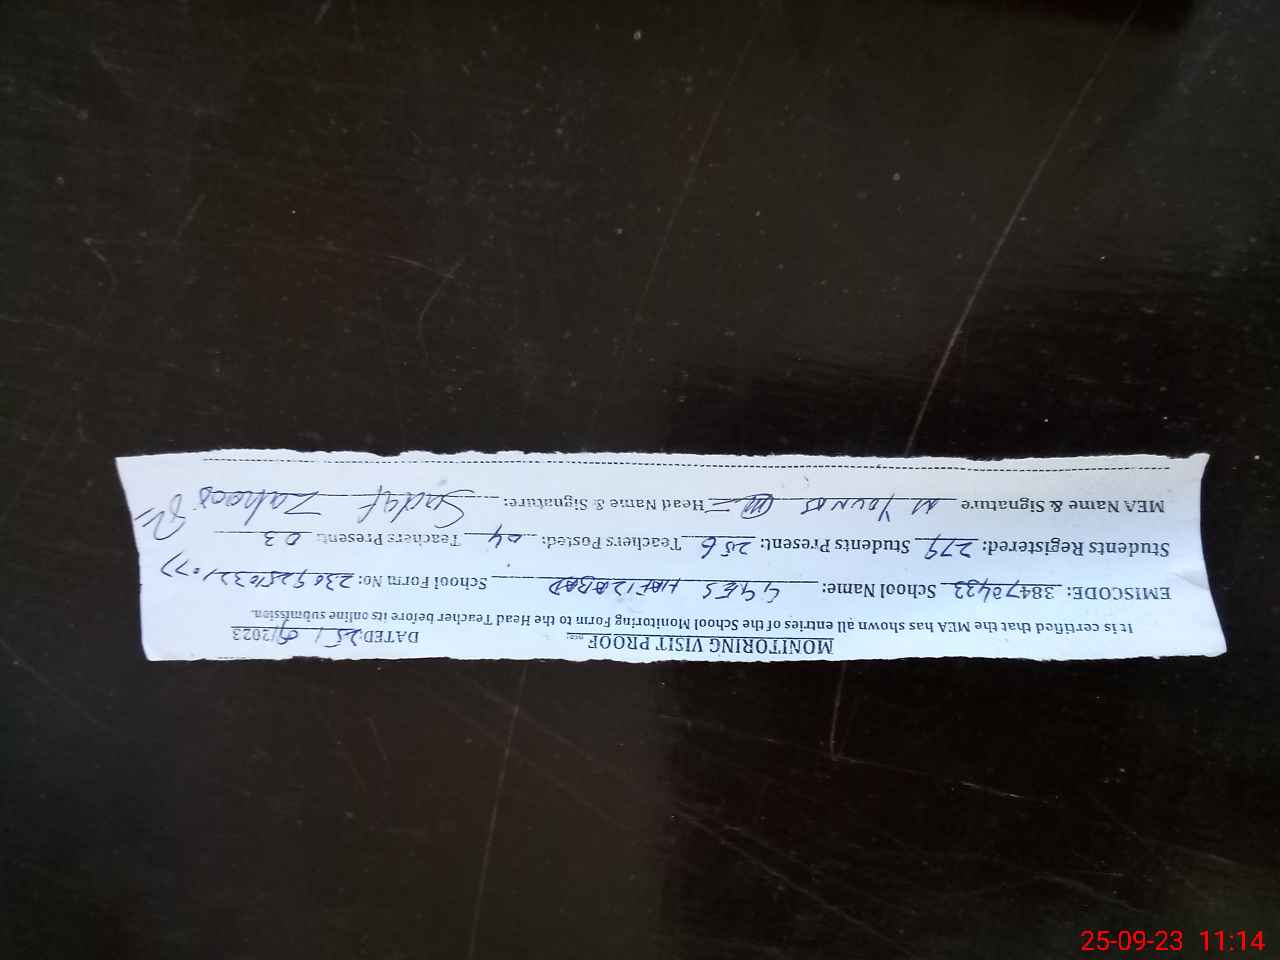 MONITORING VISIT PROOF DATED: 25/09/2023
It is certified that the MEA has shown all entries of the School Monitoring Form to the Head Teacher before its online submission.
EMISCODE: 38470433 School Name: GGES HAFIZABAD School Form No:
Students Registered: 279 Students Present: 256 Teachers Posted: 04 Teachers Present: 03
MEA Name & Signature M YOUNAS Head Name & Signature: Sadaf Zahoor
25-09-23 11:14